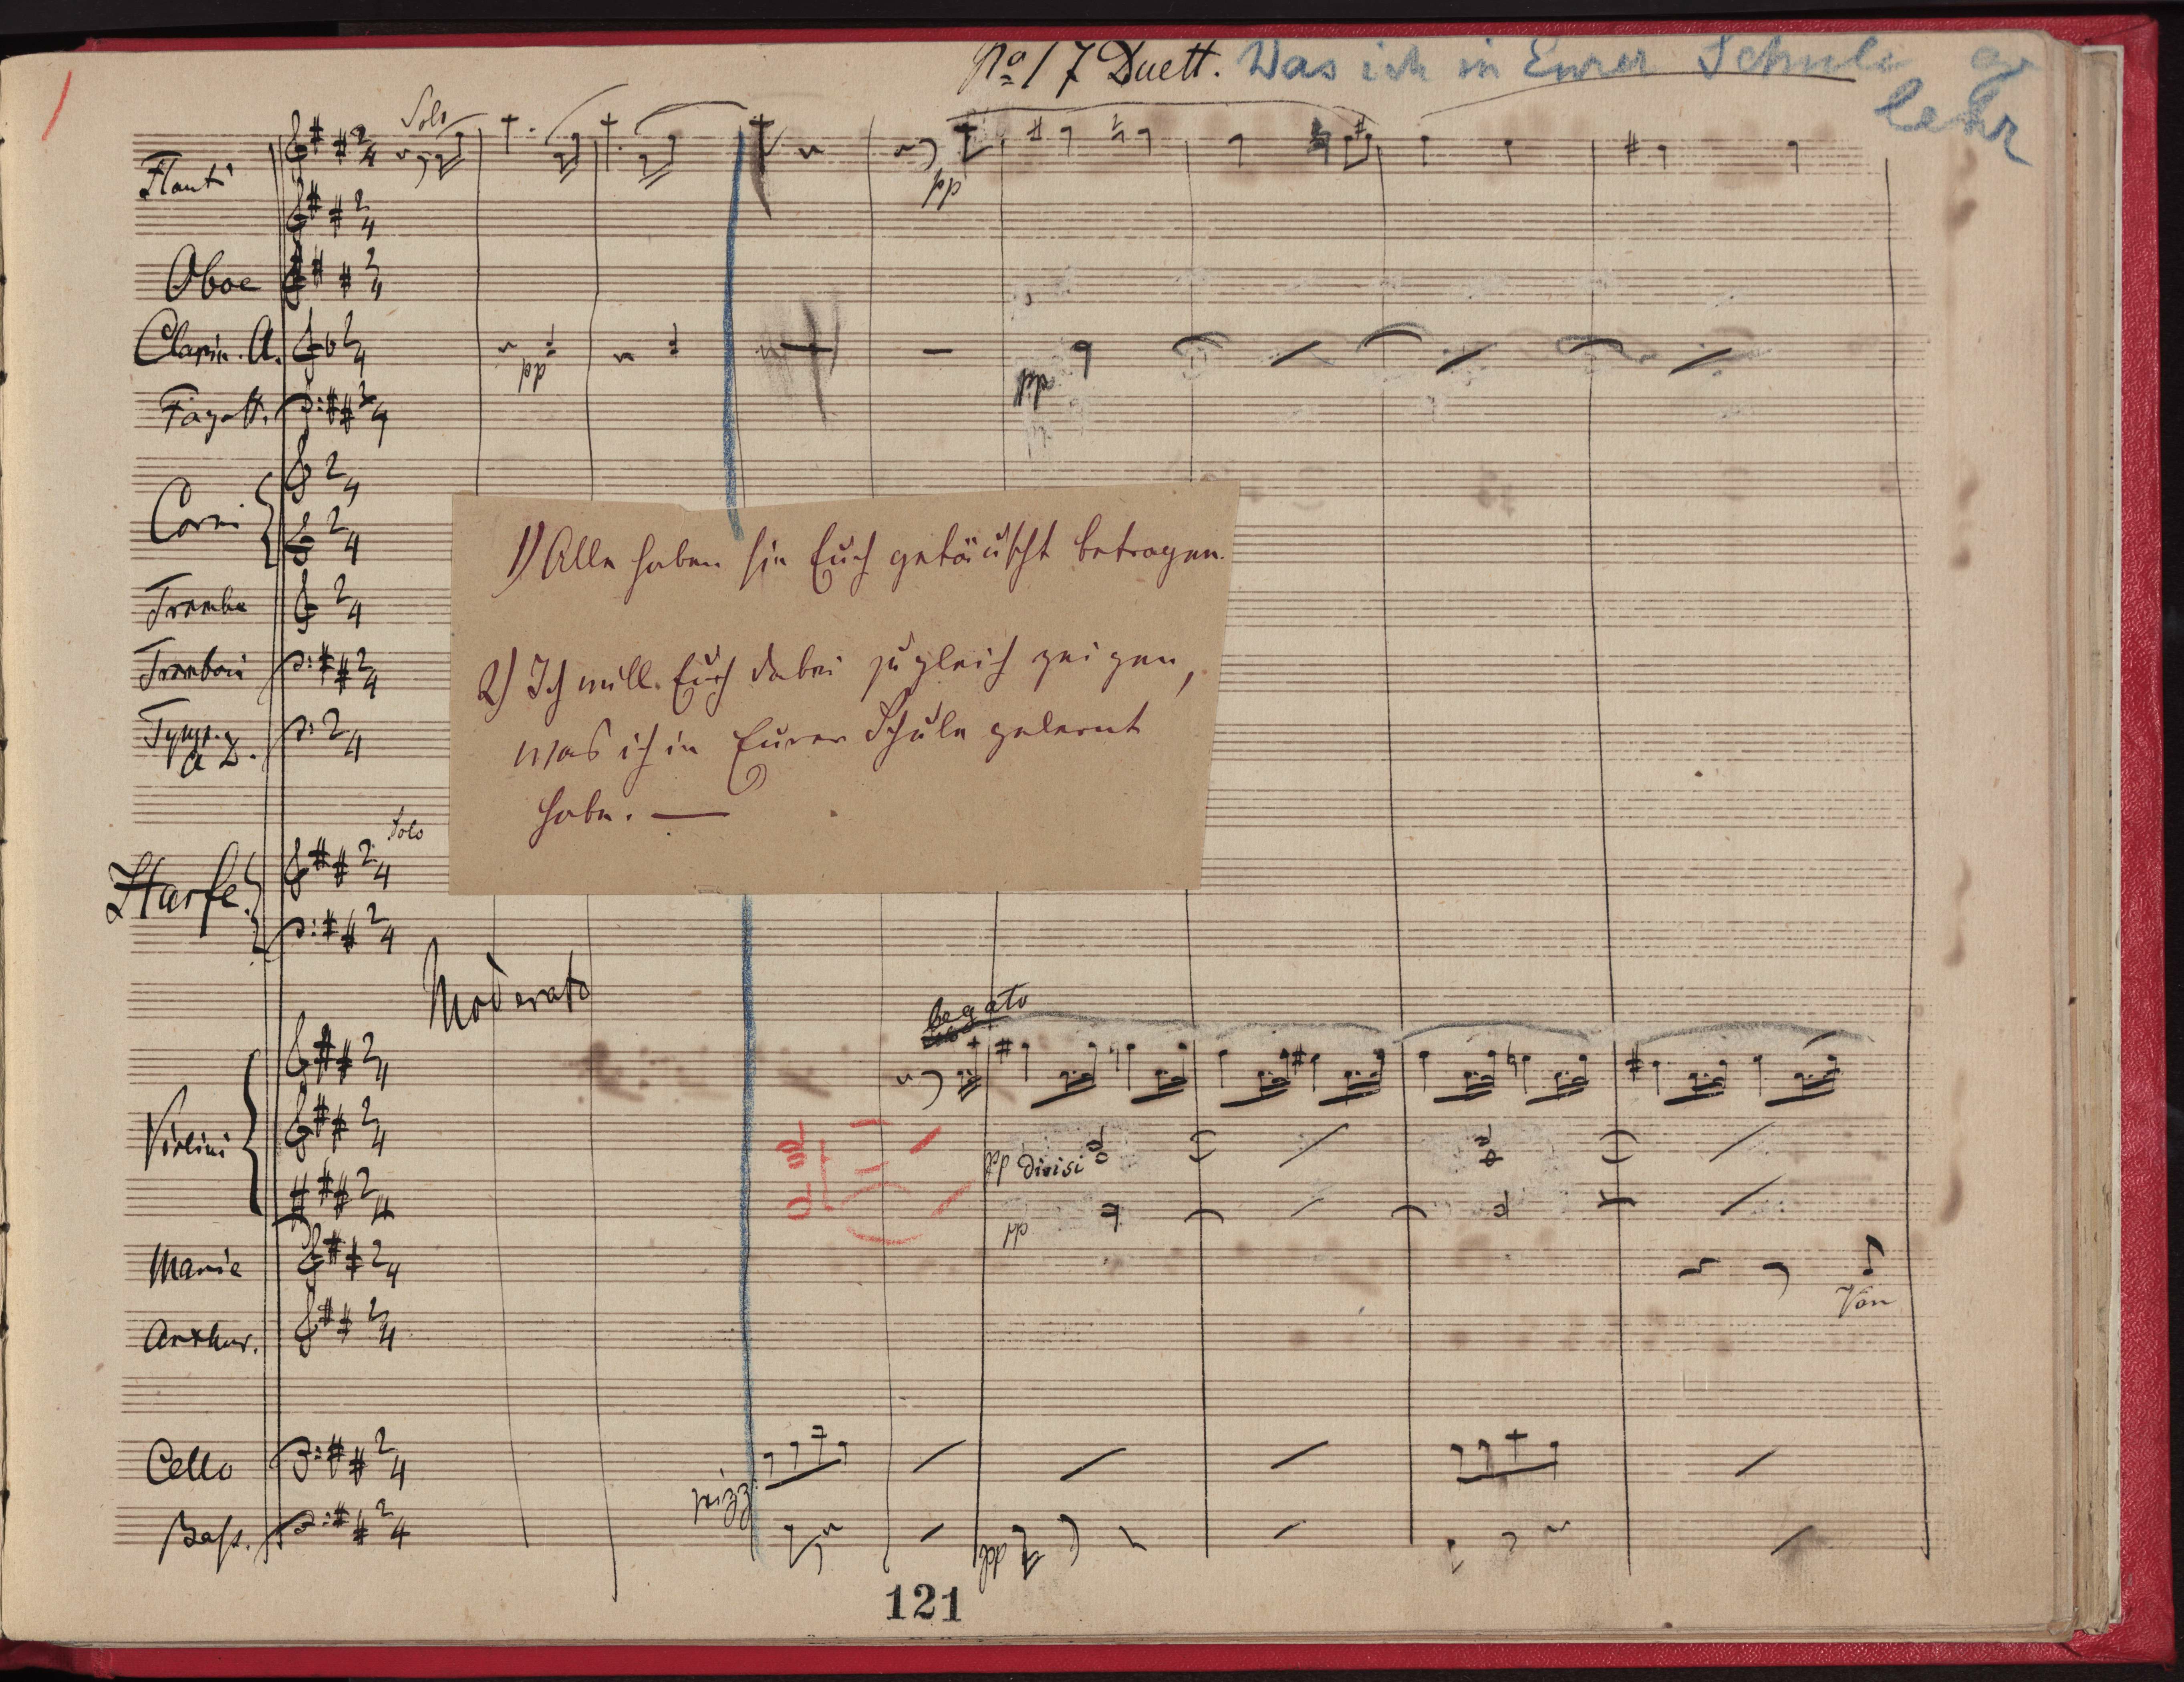 No 17 Duett. Was ich in Eurer Schule ge
lehr
Solo
Flauti
pp
Oboe
Clarin. A.
pp
pp
Fagott.
Corni
1) Alle haben sie Euch getäuscht betrogen.
Trombe
Tromboni
2) Ich will Euch dabei zugleich zeigen,
was ich in Eurer Schule gelernt
habe. —
Solo
Harfe.
Moderato
legato
Violini
pp divisi
pp
Marie
Von
Arthur.
Cello
pizz.
Bass.
pp
121